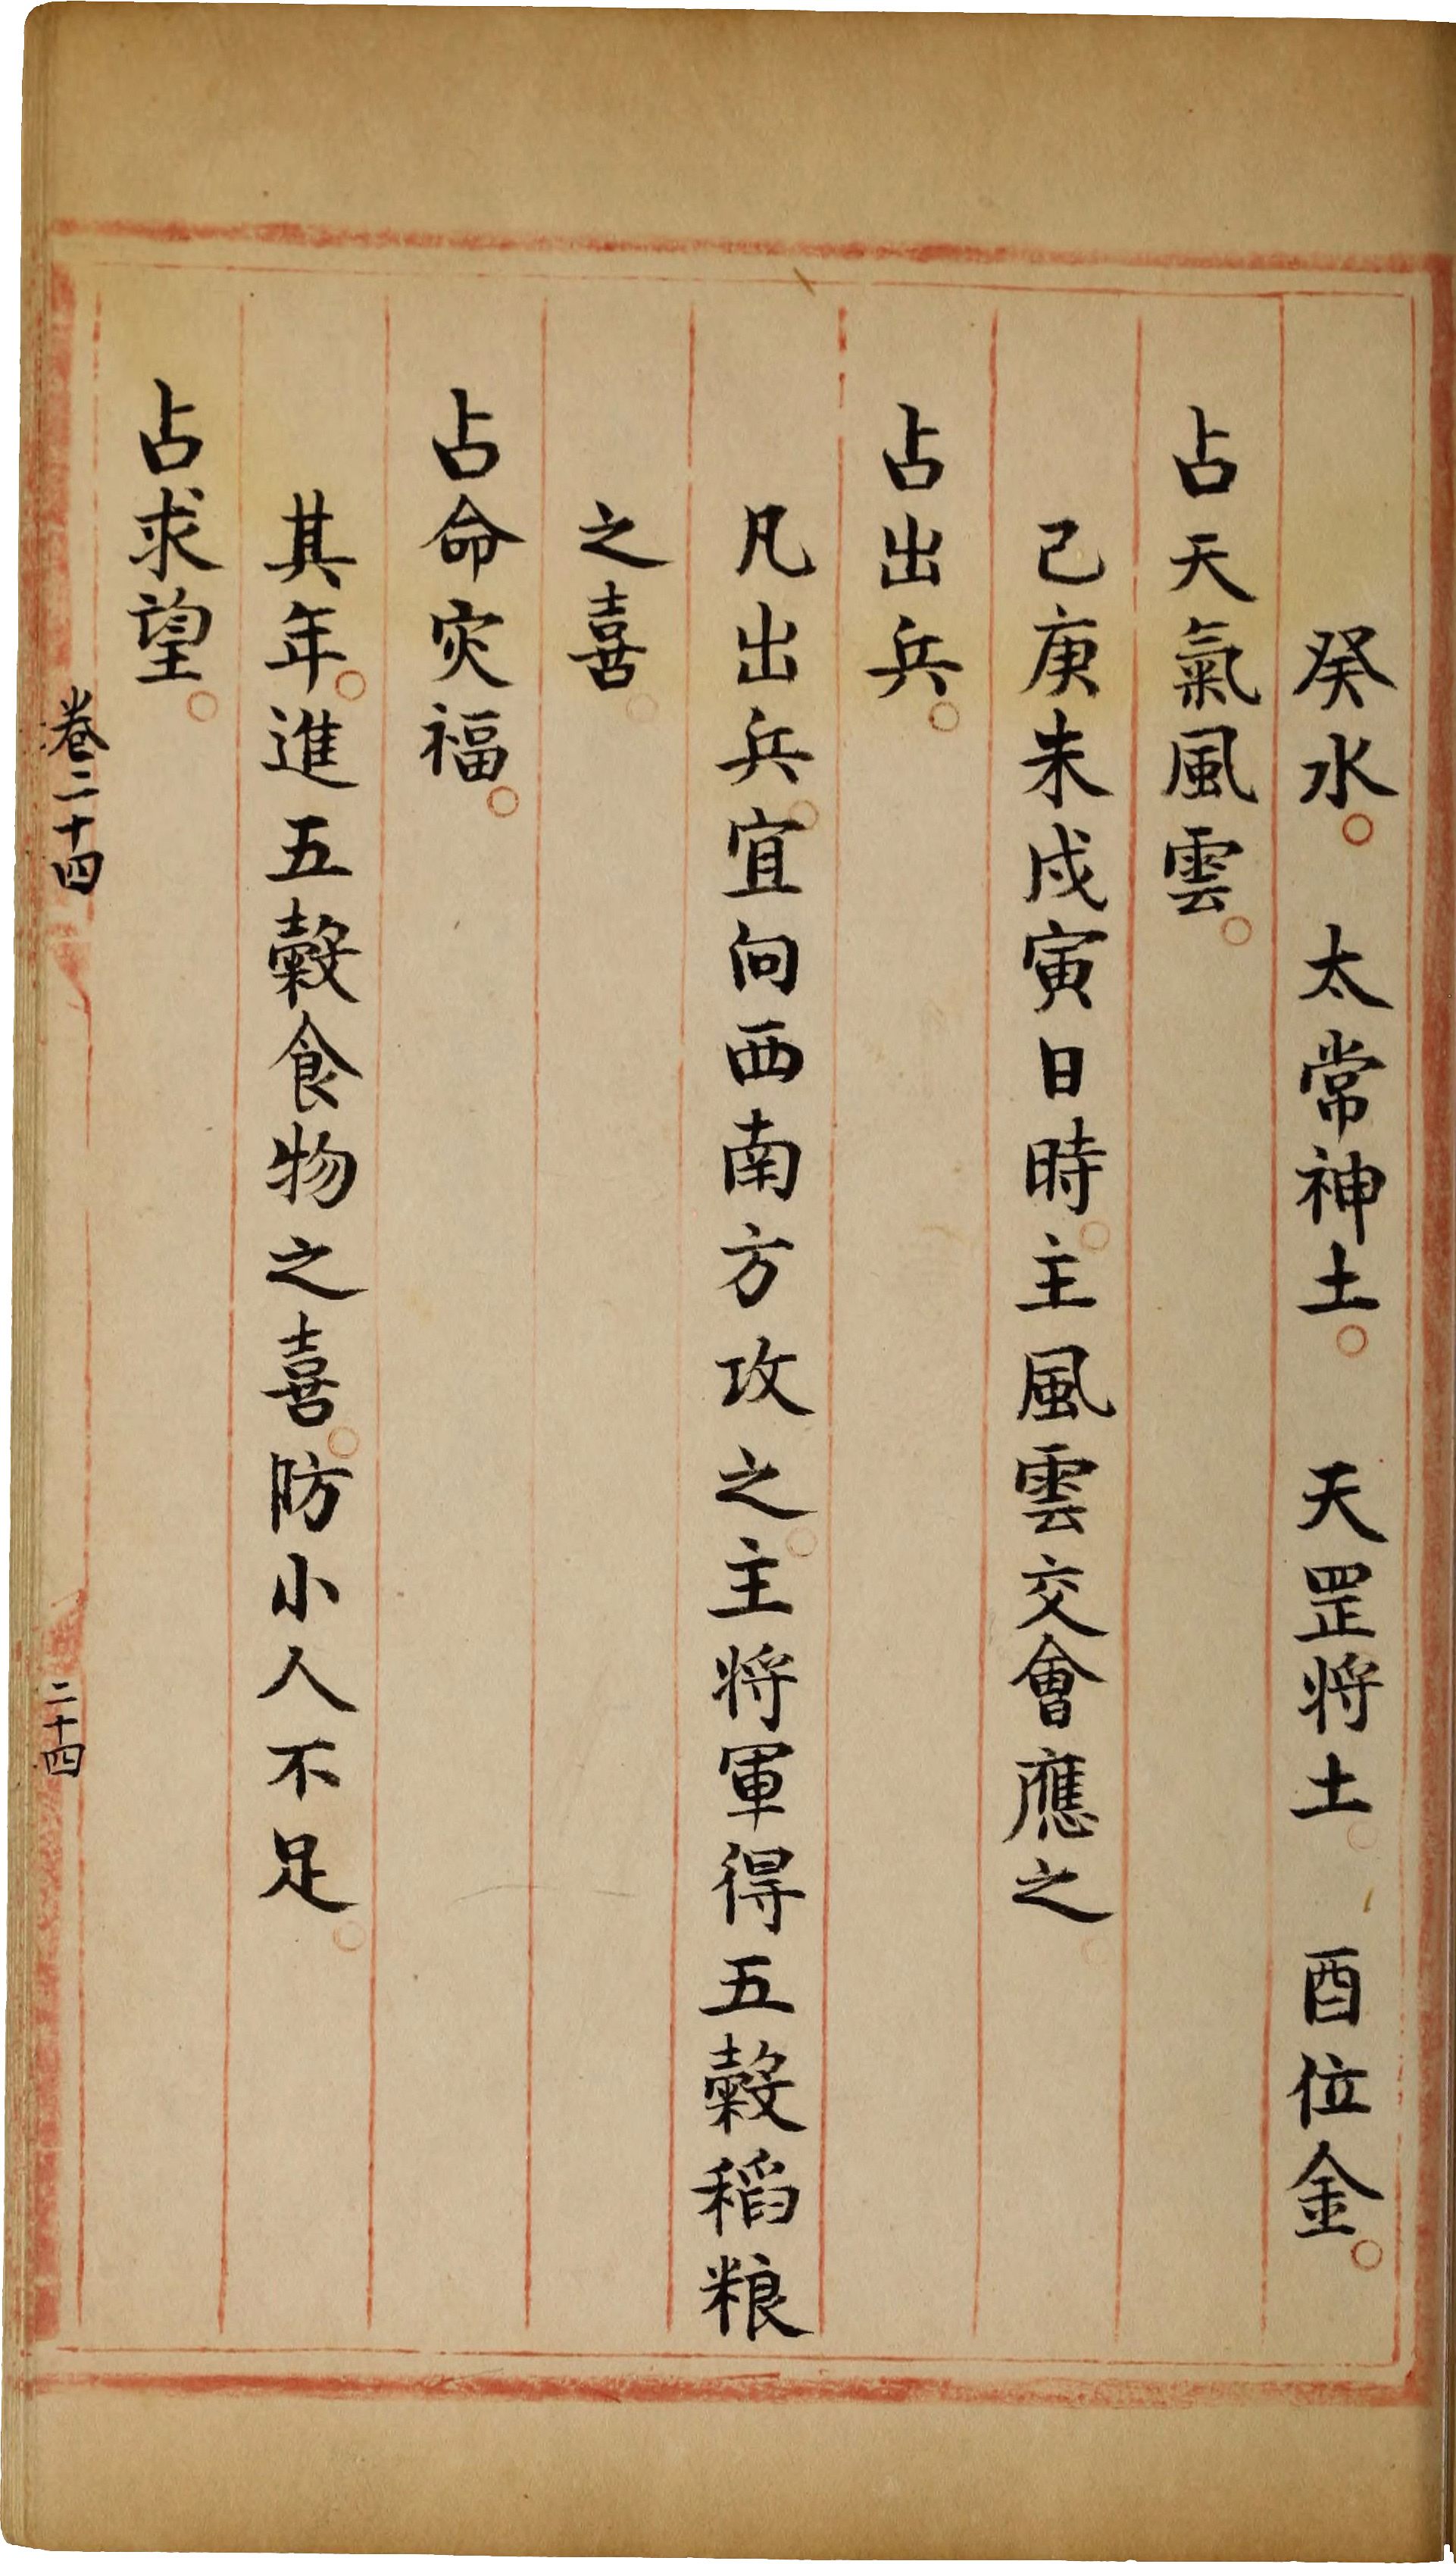 癸水。 太常神土。 天罡将土。 酉位金。
占天氣風雲。
己庚未戌寅日時。主風雲交會應之。
占出兵。
凡出兵。宜向西南方攻之。主将軍得五穀稻粮
之喜。
占命灾福。
其年。進五穀食物之喜。防小人不足。
占求望。
卷二十四
二十四